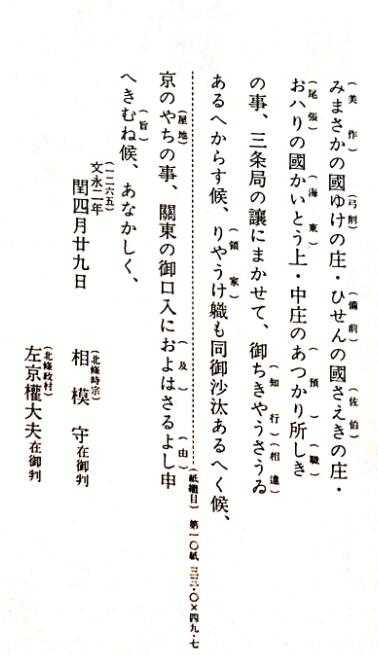 みまさかの國ゆけの庄・ひせんの國さえきの庄・
（美作）（弓削）（備前）（佐伯）
おハりの國かいとう上・中庄のあつかり所しき
（尾張）（海東）（預）（職）
の事、三条局の讓にまかせて、御ちきやうさうゐ
（知行）（相違）
あるへからす候、りやうけ職も同御沙汰あるへく候、
（領家）
（紙繼目）第一〇紙 三三・〇×四九・七
京のやちの事、關東の御口入におよはさるよし申
（屋地）（及）（由）
へきむね候、あなかしく、
（旨）
（一二六五）
文永二年
閏四月廿九日
（北條時宗）
相模守在御判
（北條政村）
左京權大夫在御判